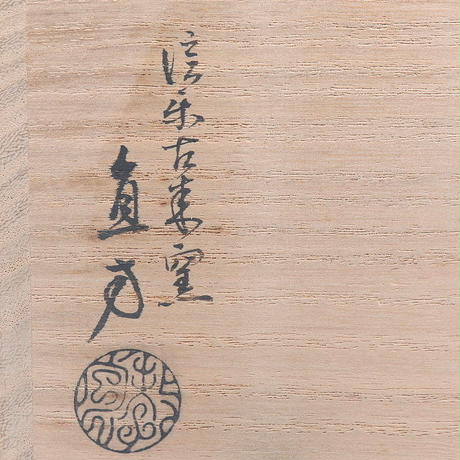 信楽古来窯
直方